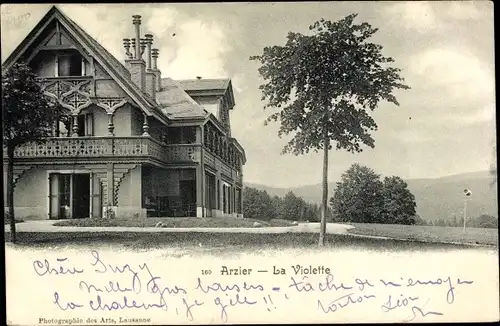 160 Arzier — La Violette
Chère Suzy
Mille gros baisers — tâche de m'envoyer
la chaleur, je gèle!!
Photographie des Arts, Lausanne